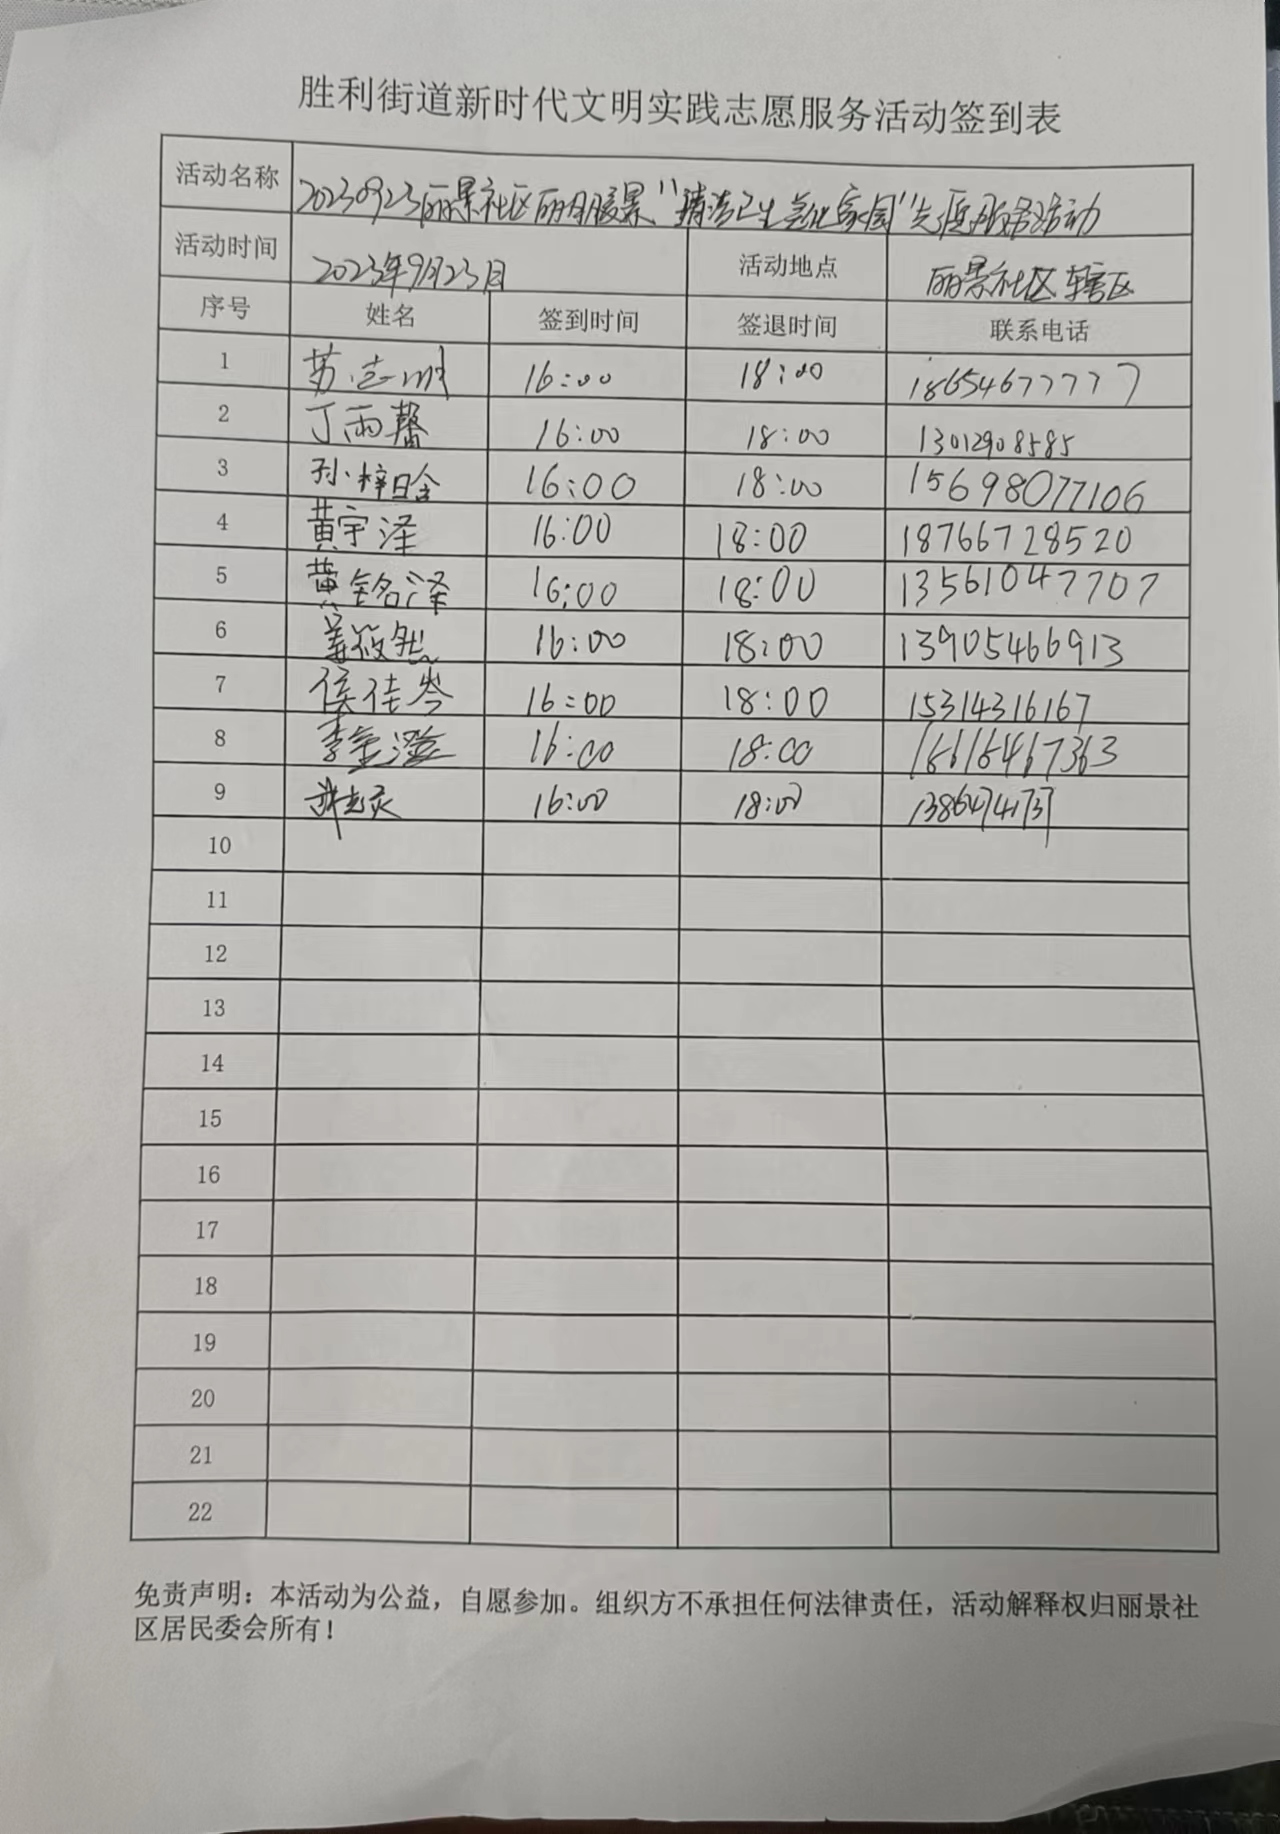 胜利街道新时代文明实践志愿服务活动签到表
活动名称 20230923丽景社区 "清洁卫生美化家园"志愿服务活动
活动时间 2023年9月23日 活动地点 丽景社区辖区
序号 姓名 签到时间 签退时间 联系电话
1 苏志刚 16:00 18:00 18654677777
2 丁雨馨 16:00 18:00 13012908585
3 孙梓晗 16:00 18:00 15698077106
4 黄宇泽 16:00 18:00 18766728520
5 黄铭泽 16:00 18:00 13561047707
6 姜筱然 16:00 18:00 13905466913
7 侯佳岑 16:00 18:00 15314316167
8 李金澄 16:00 18:00
9 16:00 18:00
10
11
12
13
14
15
16
17
18
19
20
21
22
免责声明：本活动为公益，自愿参加。组织方不承担任何法律责任，活动解释权归丽景社
区居民委会所有！